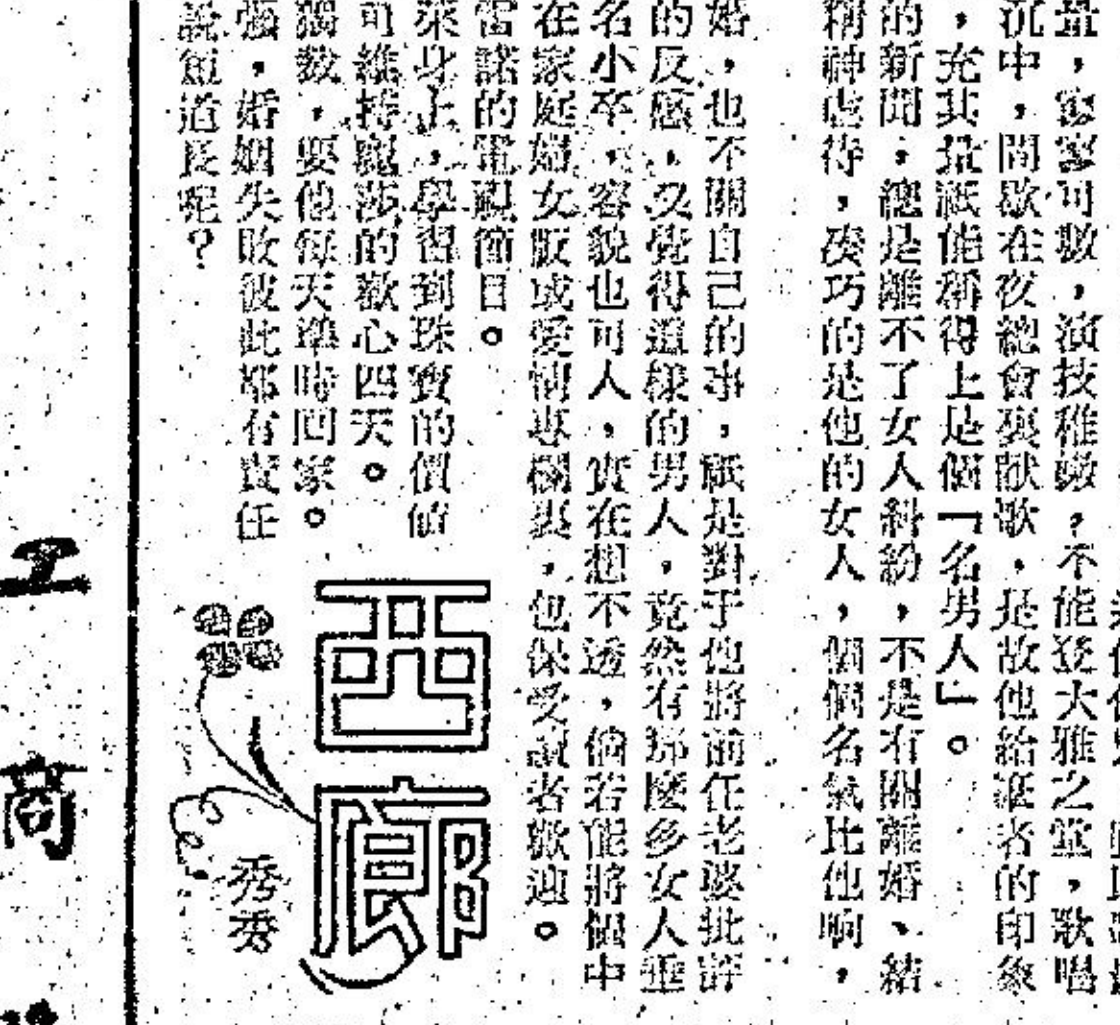 量，寥寥可數，演技稚嫩，不能登大雅之堂，歌唱
沉中，間歇在夜總會裏獻歌，是故他給讀者的印象
，充其量祇能稱得上是個「名男人」。
的新聞，總是離不了女人糾紛，不是有關離婚、結
精神虐待，湊巧的是他的女人，個個名氣比他响，
婚，也不關自己的事，祇是對于他將前任老婆批評
的反感，又覺得這樣的男人，竟然有那麼多女人垂
名小卒，容貌也可人，實在想不透，倘若能將個中
在家庭婦女版或愛情專欄裏，也保受讀者歡迎。
雷諾的電視節目。
萊身上，學習到珠寶的價值
可維持寵莎的歡心四天。
獨裁，要他每天準時回家。
強，婚姻失敗彼此都有責任
說短道長呢？
西廊
秀秀
工商